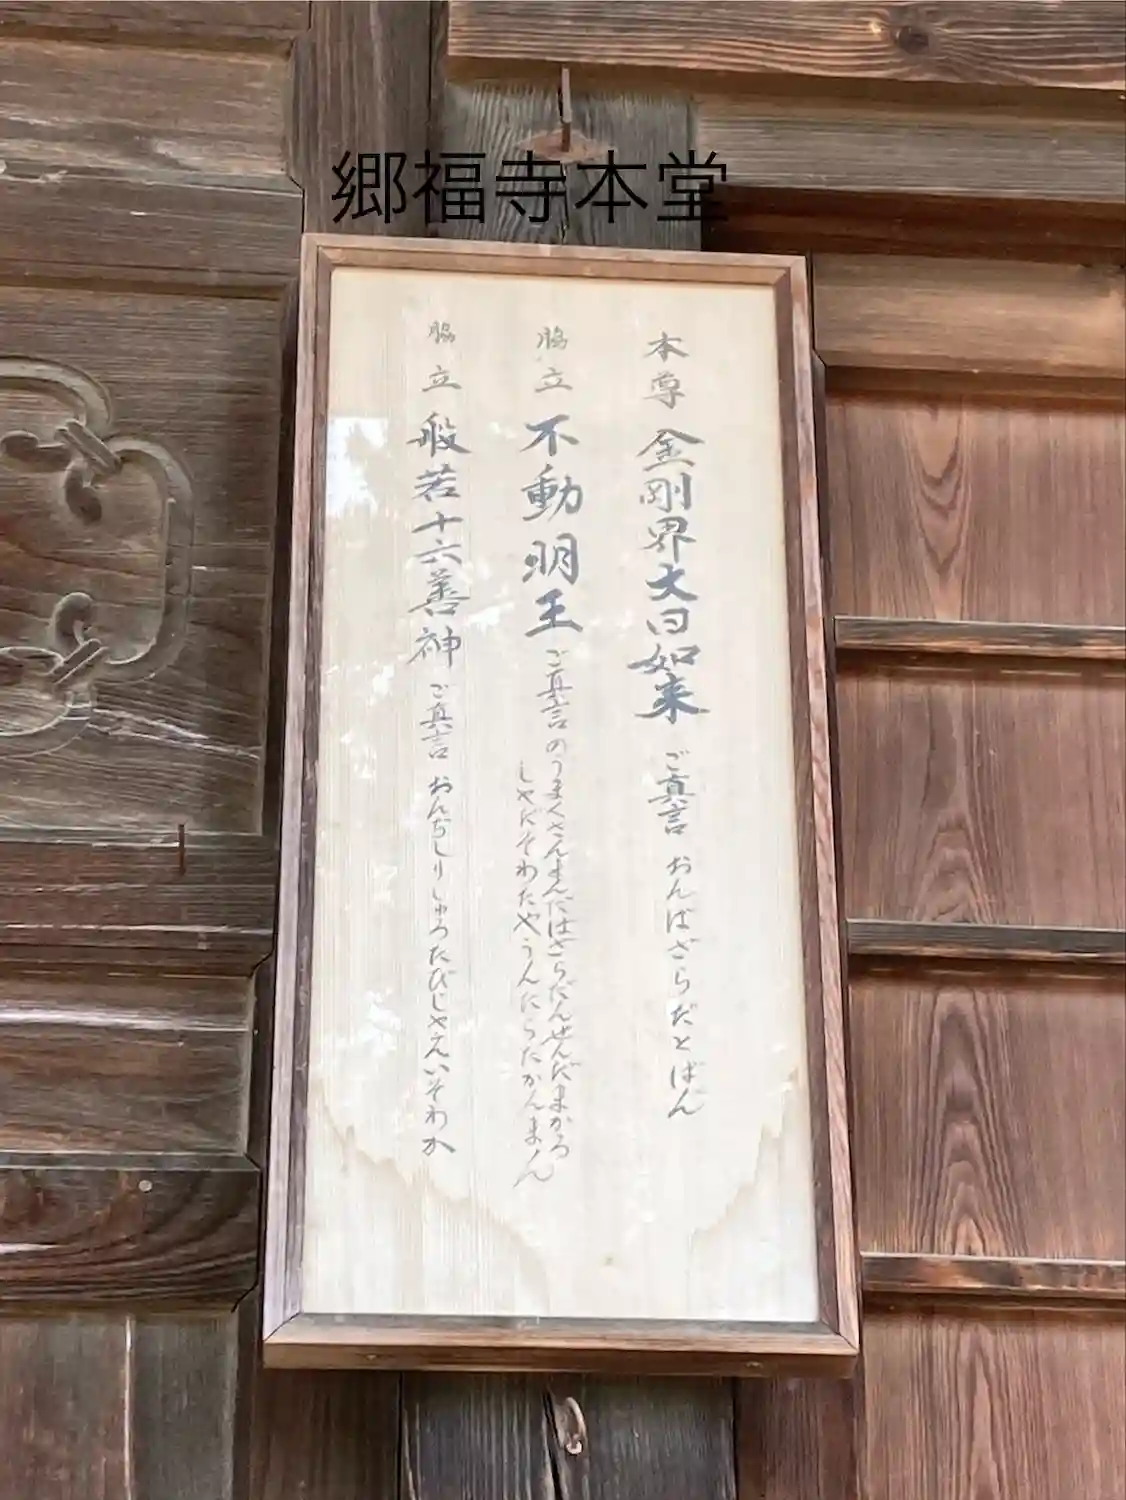 郷福寺本堂
本尊 金剛界大日如来 ご真言 おんばざらだとばん
脇立 不動明王 ご真言 のうまくさんまんだばざらだんせんだまかろ
しゃだそわたやうんたらたかんまん
脇立 般若十六善神 ご真言 おんぢしりしゅろたびじゃえいそわか